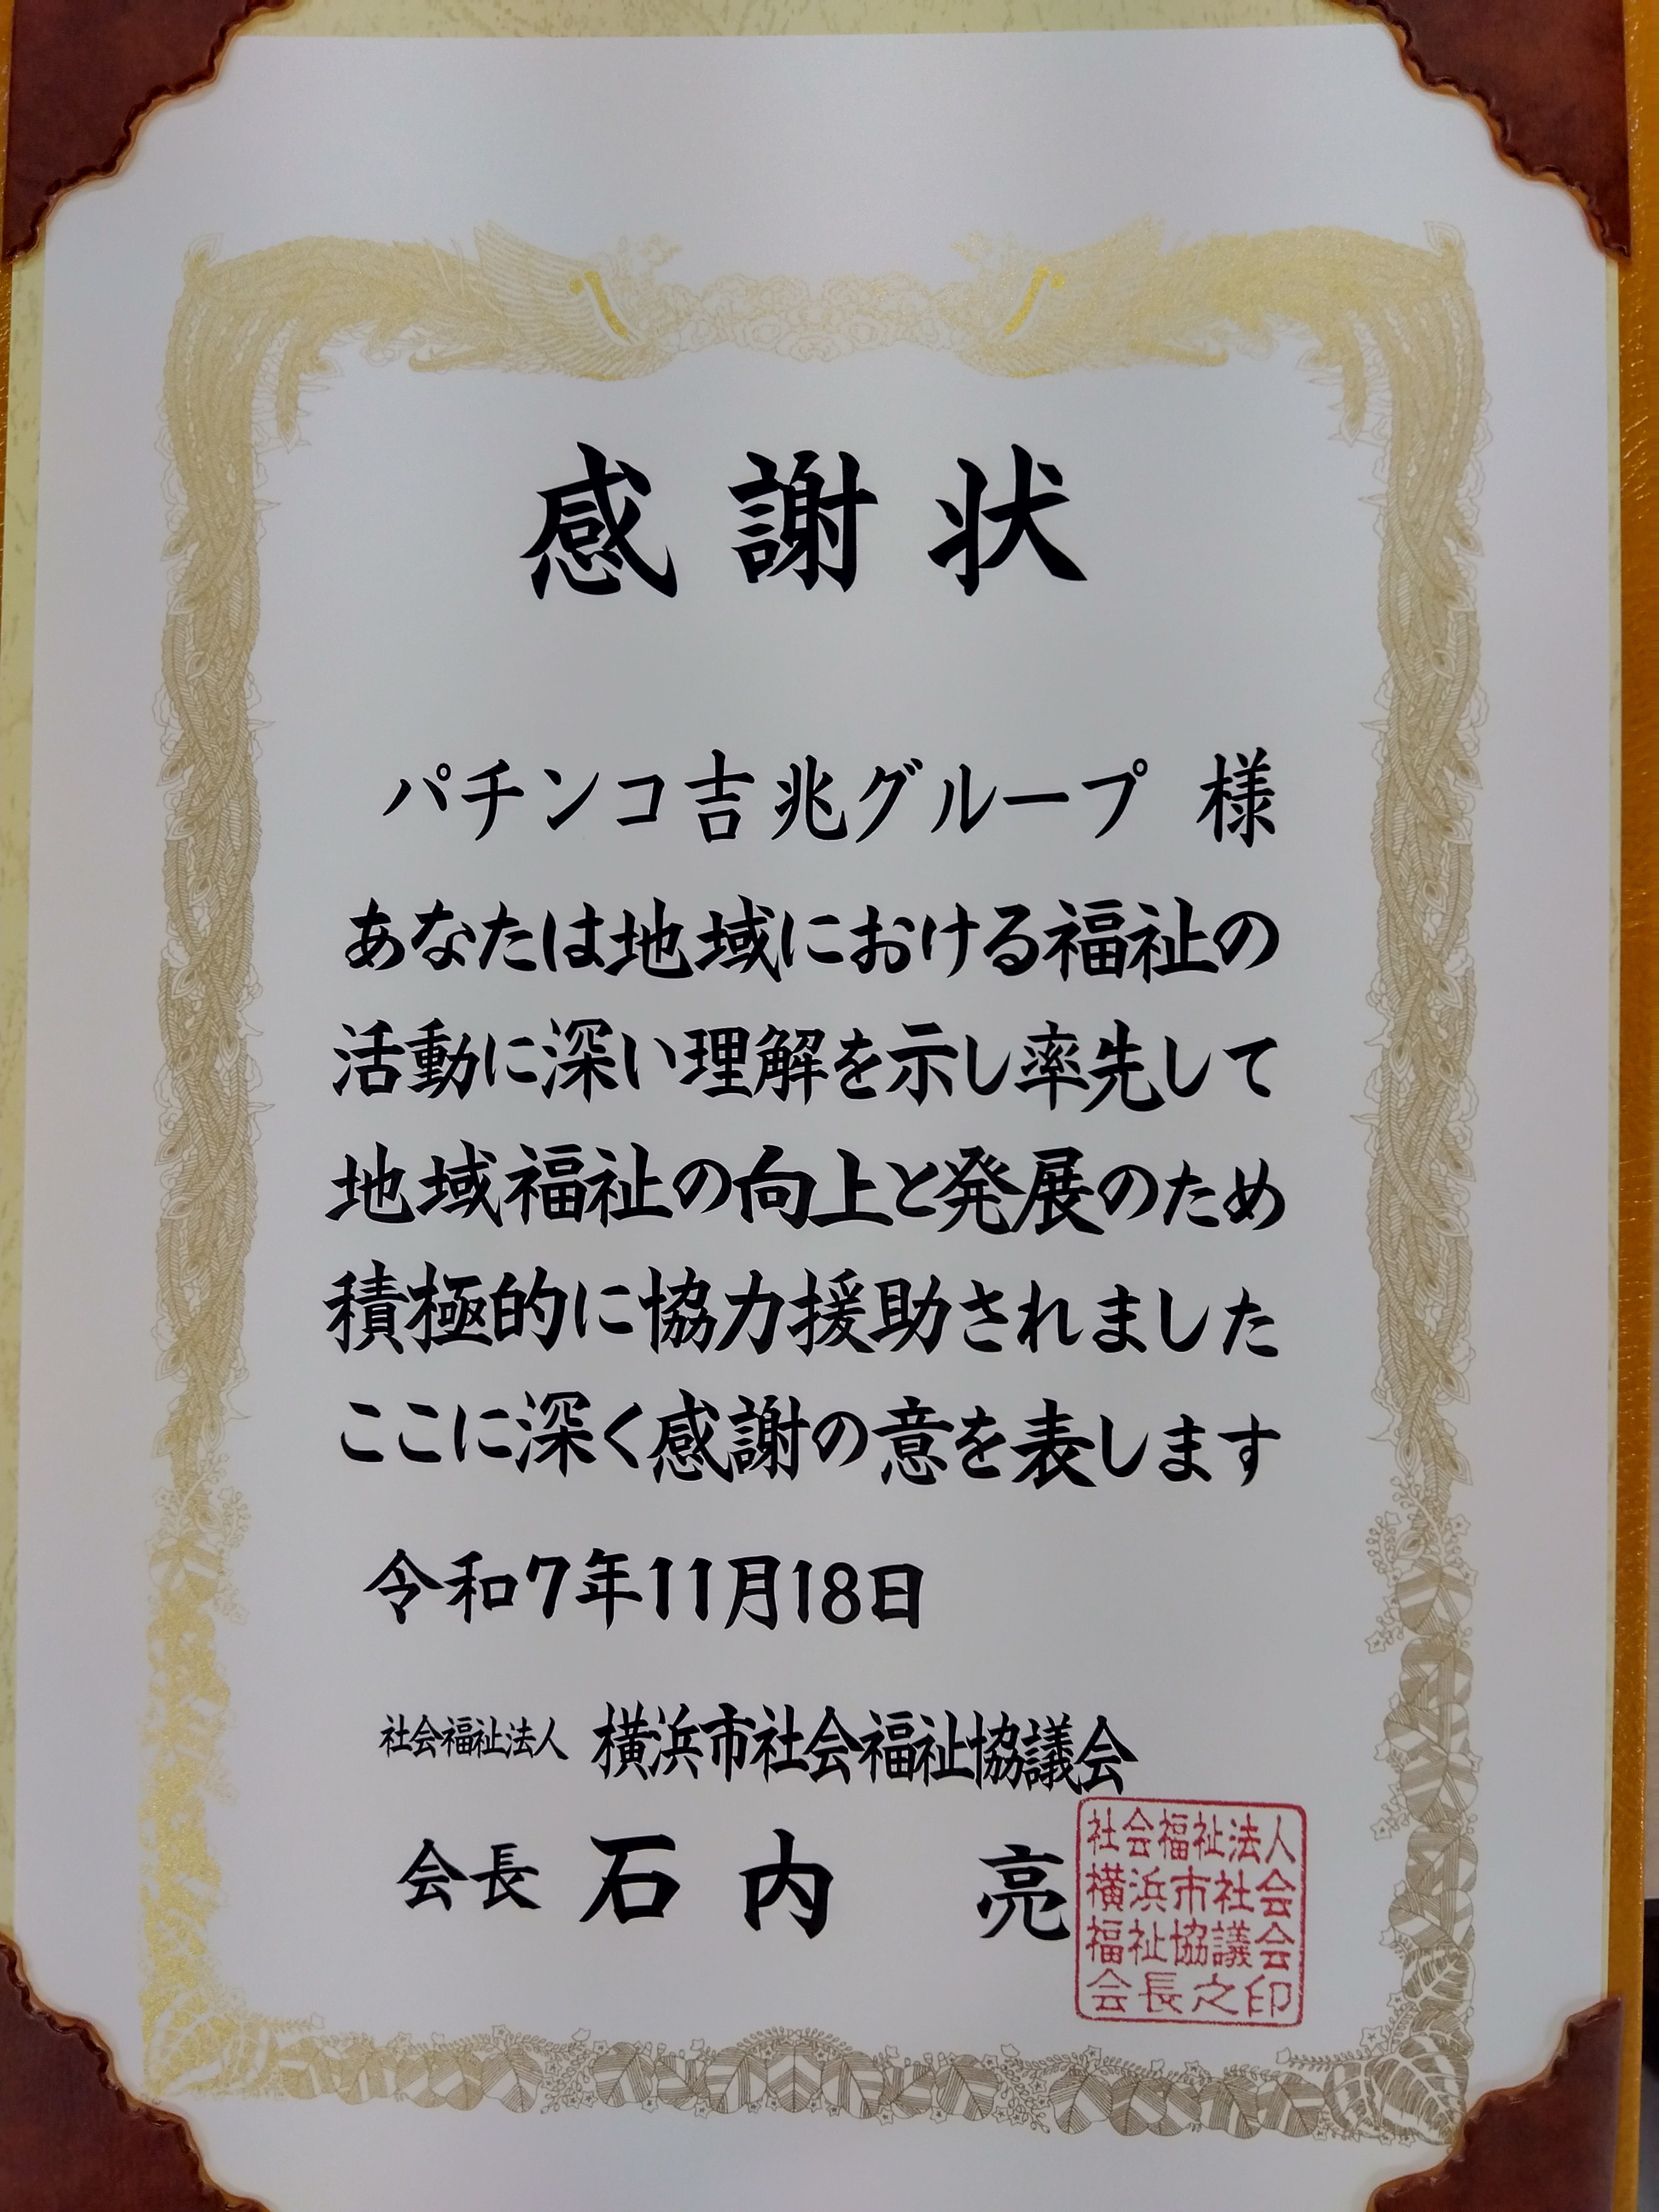 感謝状
パチンコ吉兆グループ 様
あなたは地域における福祉の
活動に深い理解を示し率先して
地域福祉の向上と発展のため
積極的に協力援助されました
ここに深く感謝の意を表します
令和7年11月18日
社会福祉法人 横浜市社会福祉協議会
会長 石内 亮
社会福祉法人
横浜市社会
福祉協議会
会長之印